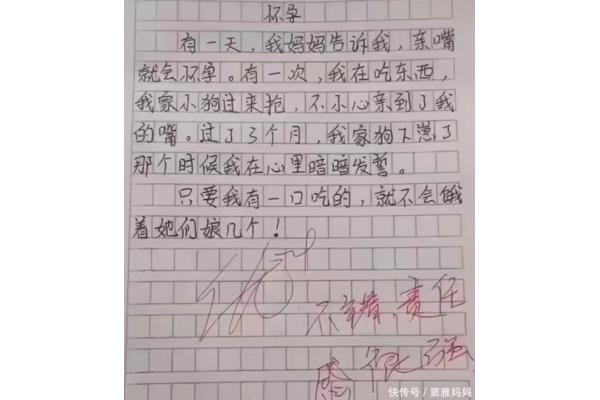 怀孕
有一天，我妈妈告诉我，亲嘴
就会怀孕。有一次，我在吃东西，
我家小狗过来抢，不小心亲到了我
的嘴。过了3个月，我家狗下崽了
那个时候我在心里暗暗发誓。
只要我有一口吃的，就不会饿
着她们娘几个！
优
不错，责任
感很强
快传号／窦雅妈妈